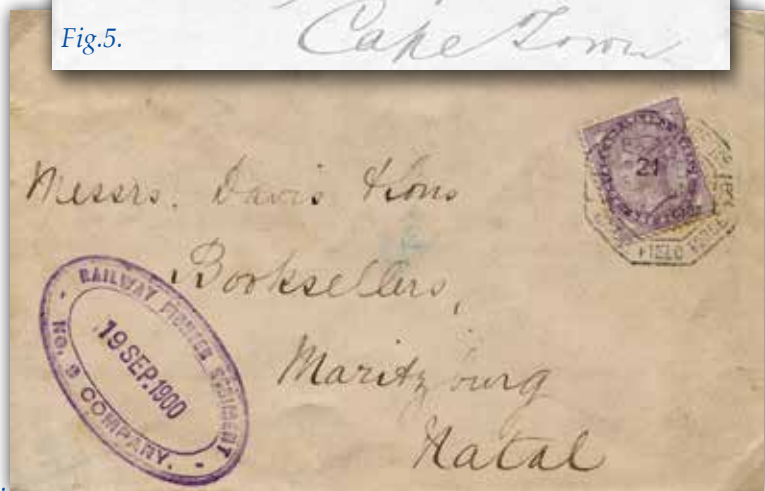 Fig.5.
Cape Town
Messrs. Davis & Sons
Booksellers,
Maritzburg
Natal
RAILWAY PIONEER REGIMENT
19 SEP.1900
NO. 9 COMPANY.
21
FIELD